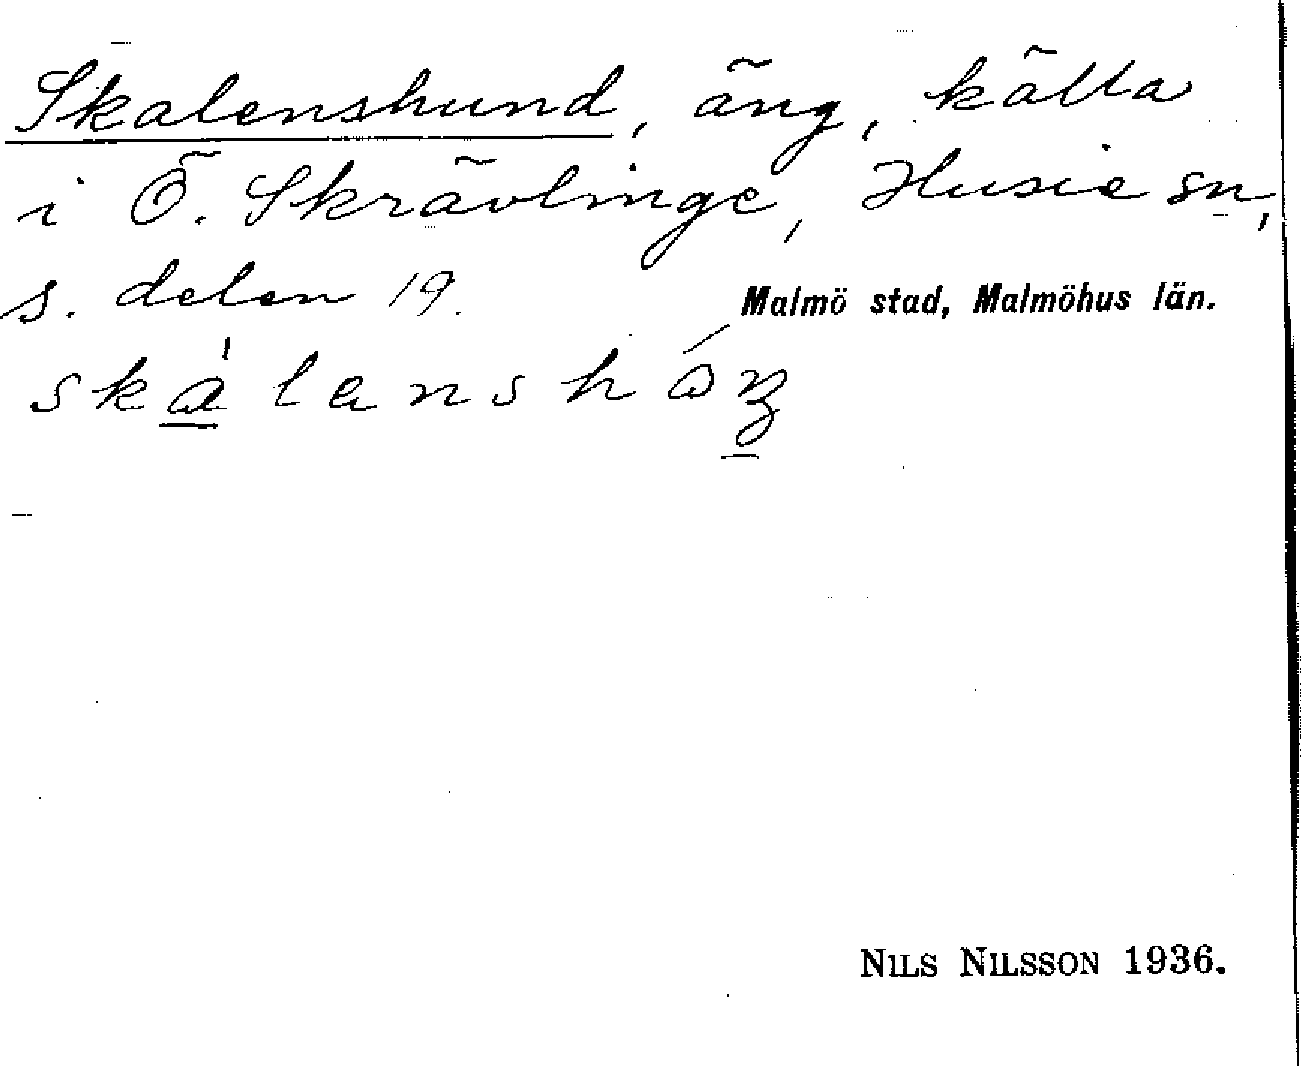 Skalenshund, äng, källa
i Ö. Skrävlinge, Husie sn,
s. delen 19.
Malmö stad, Malmöhus län.
NILS NILSSON 1936.